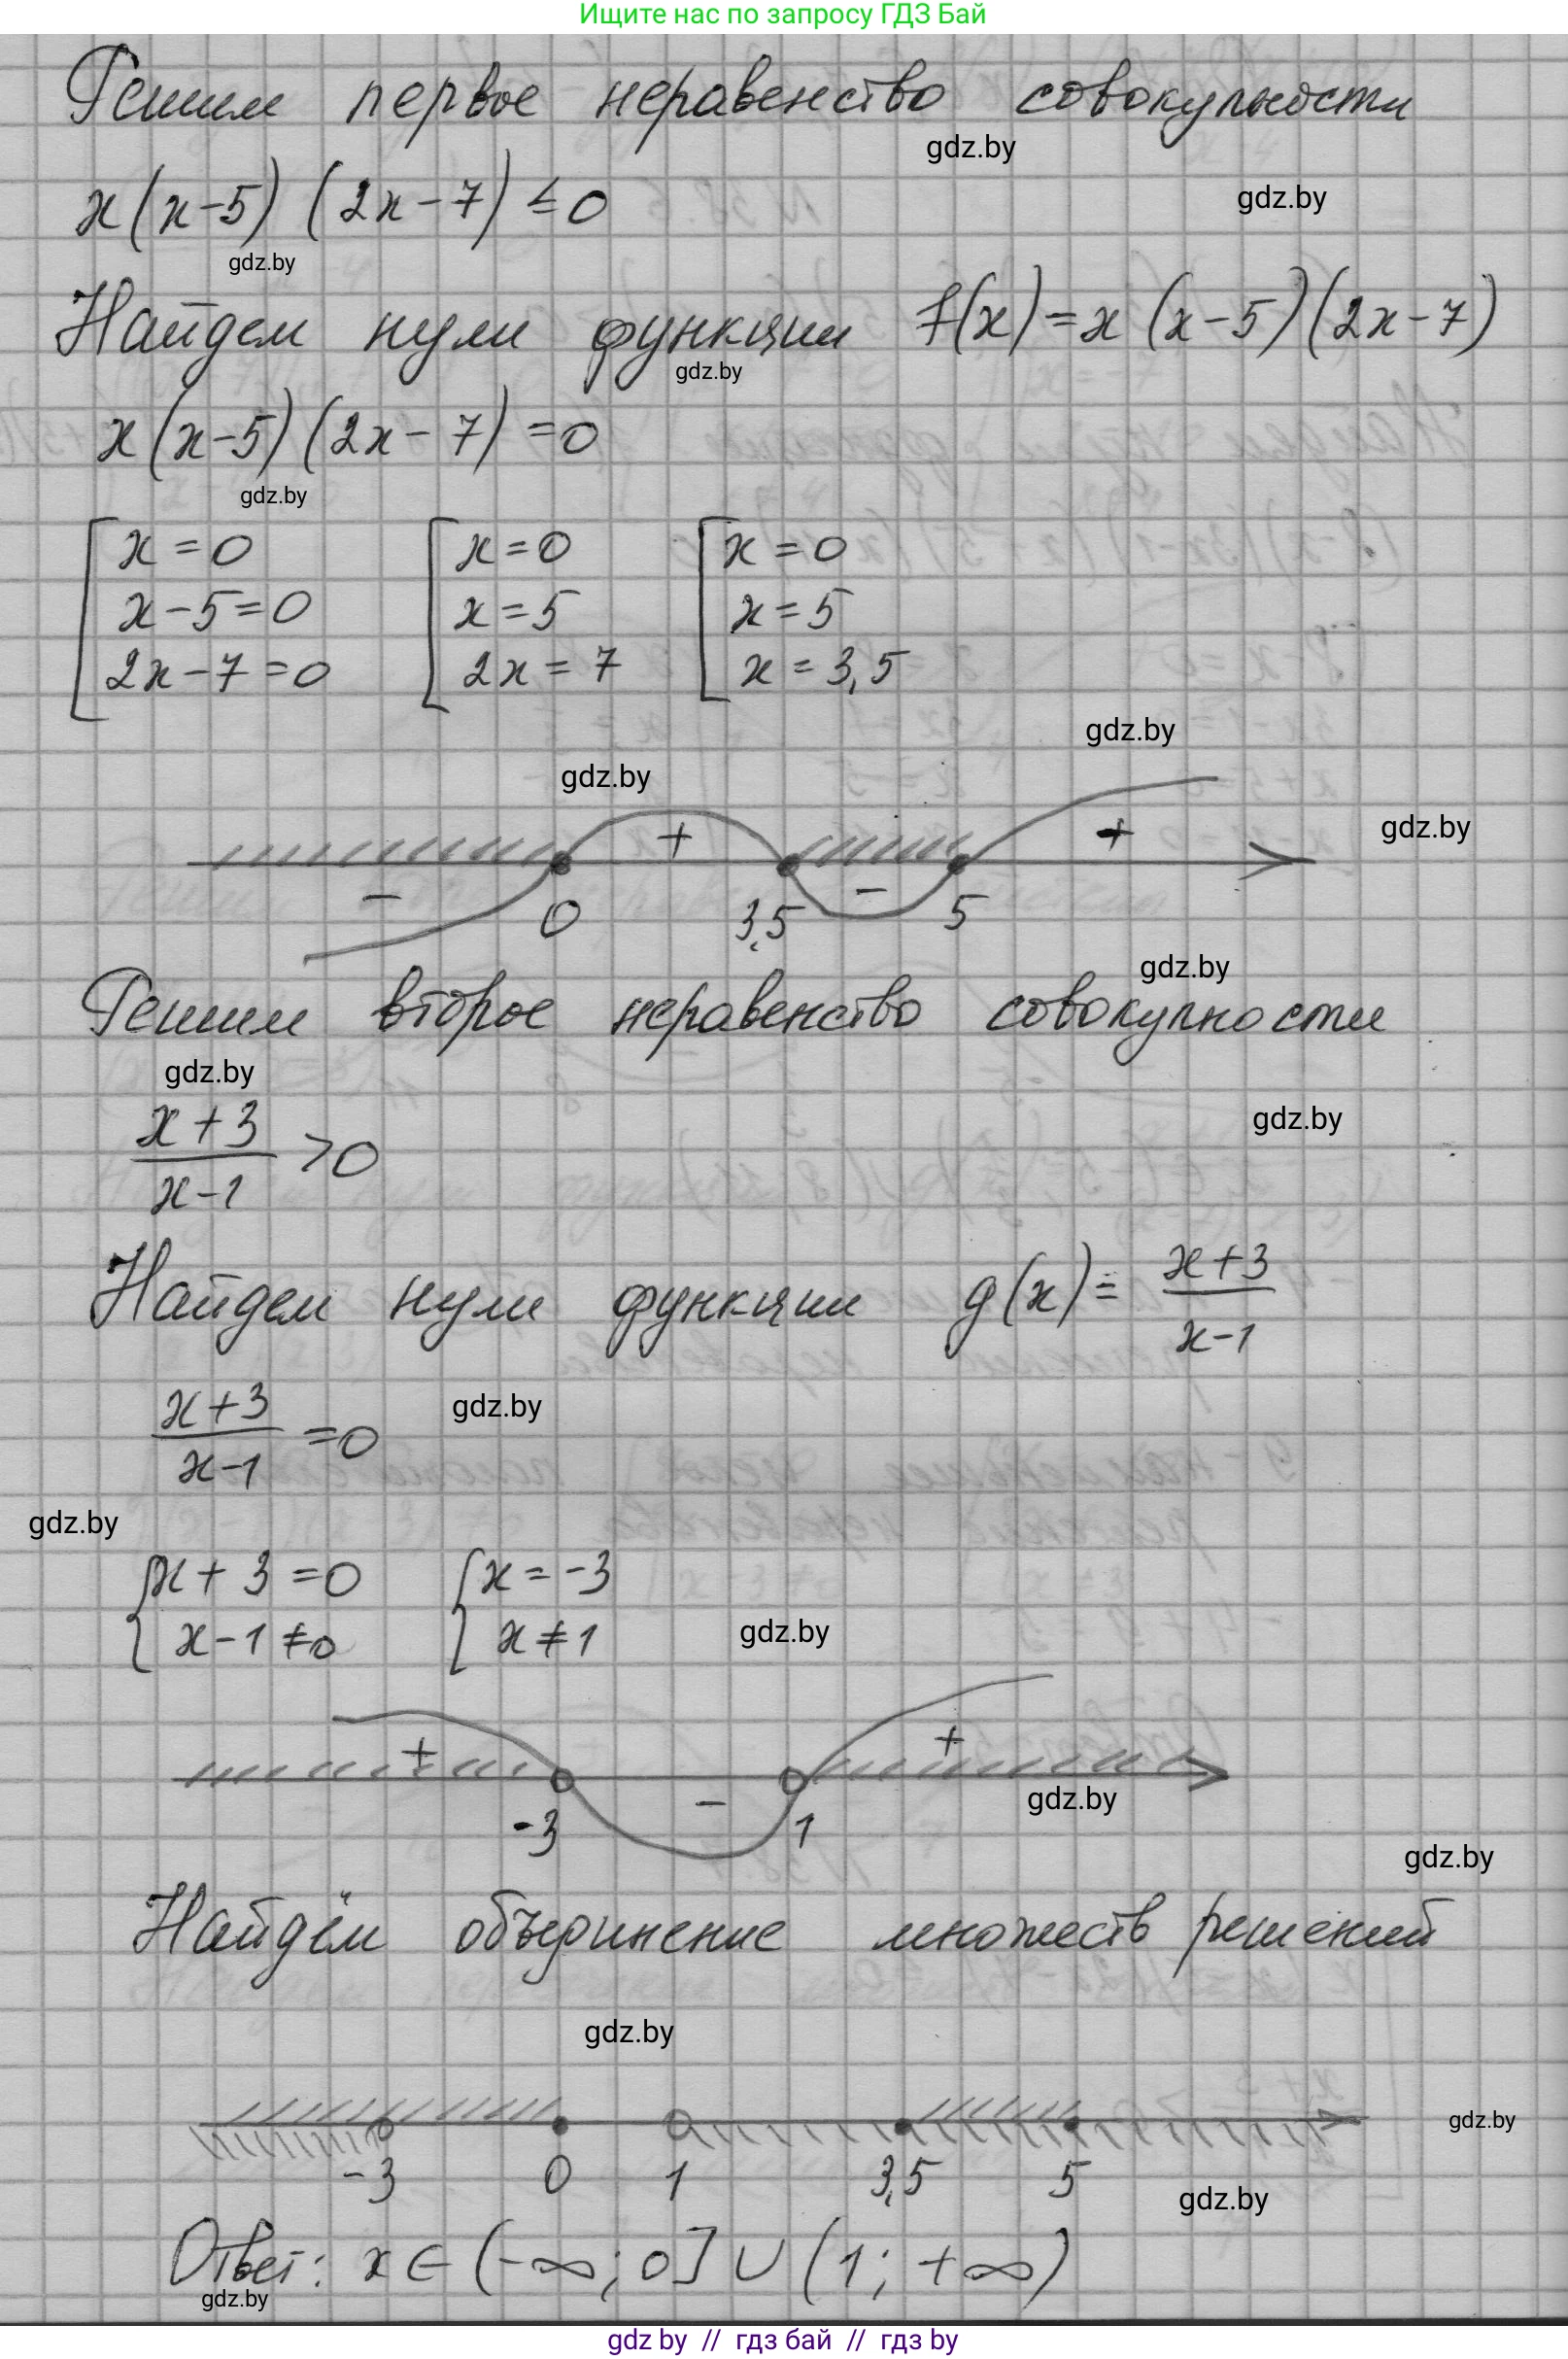 Ищите нас по запросу ГДЗ Бай
Решим первое неравенство совокупности
gdz.by
gdz.by
x(x-5)(2x-7)≤0
gdz.by
Найдем нули функции f(x)=x(x-5)(2x-7)
gdz.by
x(x-5)(2x-7)=0
gdz.by
[x=0 [x=0 [x=0
x-5=0 x=5 x=5
2x-7=0 2x=7 x=3,5
gdz.by
gdz.by
gdz.by
+ +
- -
0 3,5 5
gdz.by
Решим второе неравенство совокупности
gdz.by
gdz.by
x+3
>0
x-1
Найдем нули функции g(x)= x+3
x-1
x+3
=0
x-1
gdz.by
gdz.by
{x+3=0 {x=-3
x-1≠0 x≠1
gdz.by
+ +
-
-3 1
gdz.by
gdz.by
Найдём объединение множеств решений
gdz.by
gdz.by
-3 0 1 3,5 5
gdz.by
Ответ: x∈(-∞;0]∪(1;+∞)
gdz.by
gdz by // гдз бай // гдз by